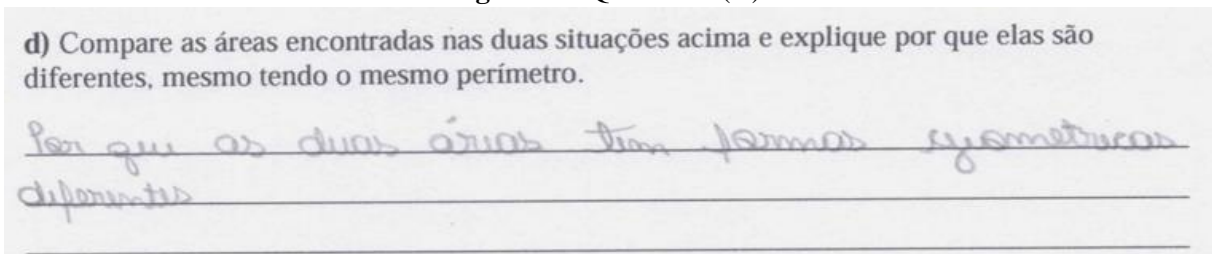 d) Compare as áreas encontradas nas duas situações acima e explique por que elas são
diferentes, mesmo tendo o mesmo perímetro.
Por que as duas árias tem formas gyometricas
diferentes